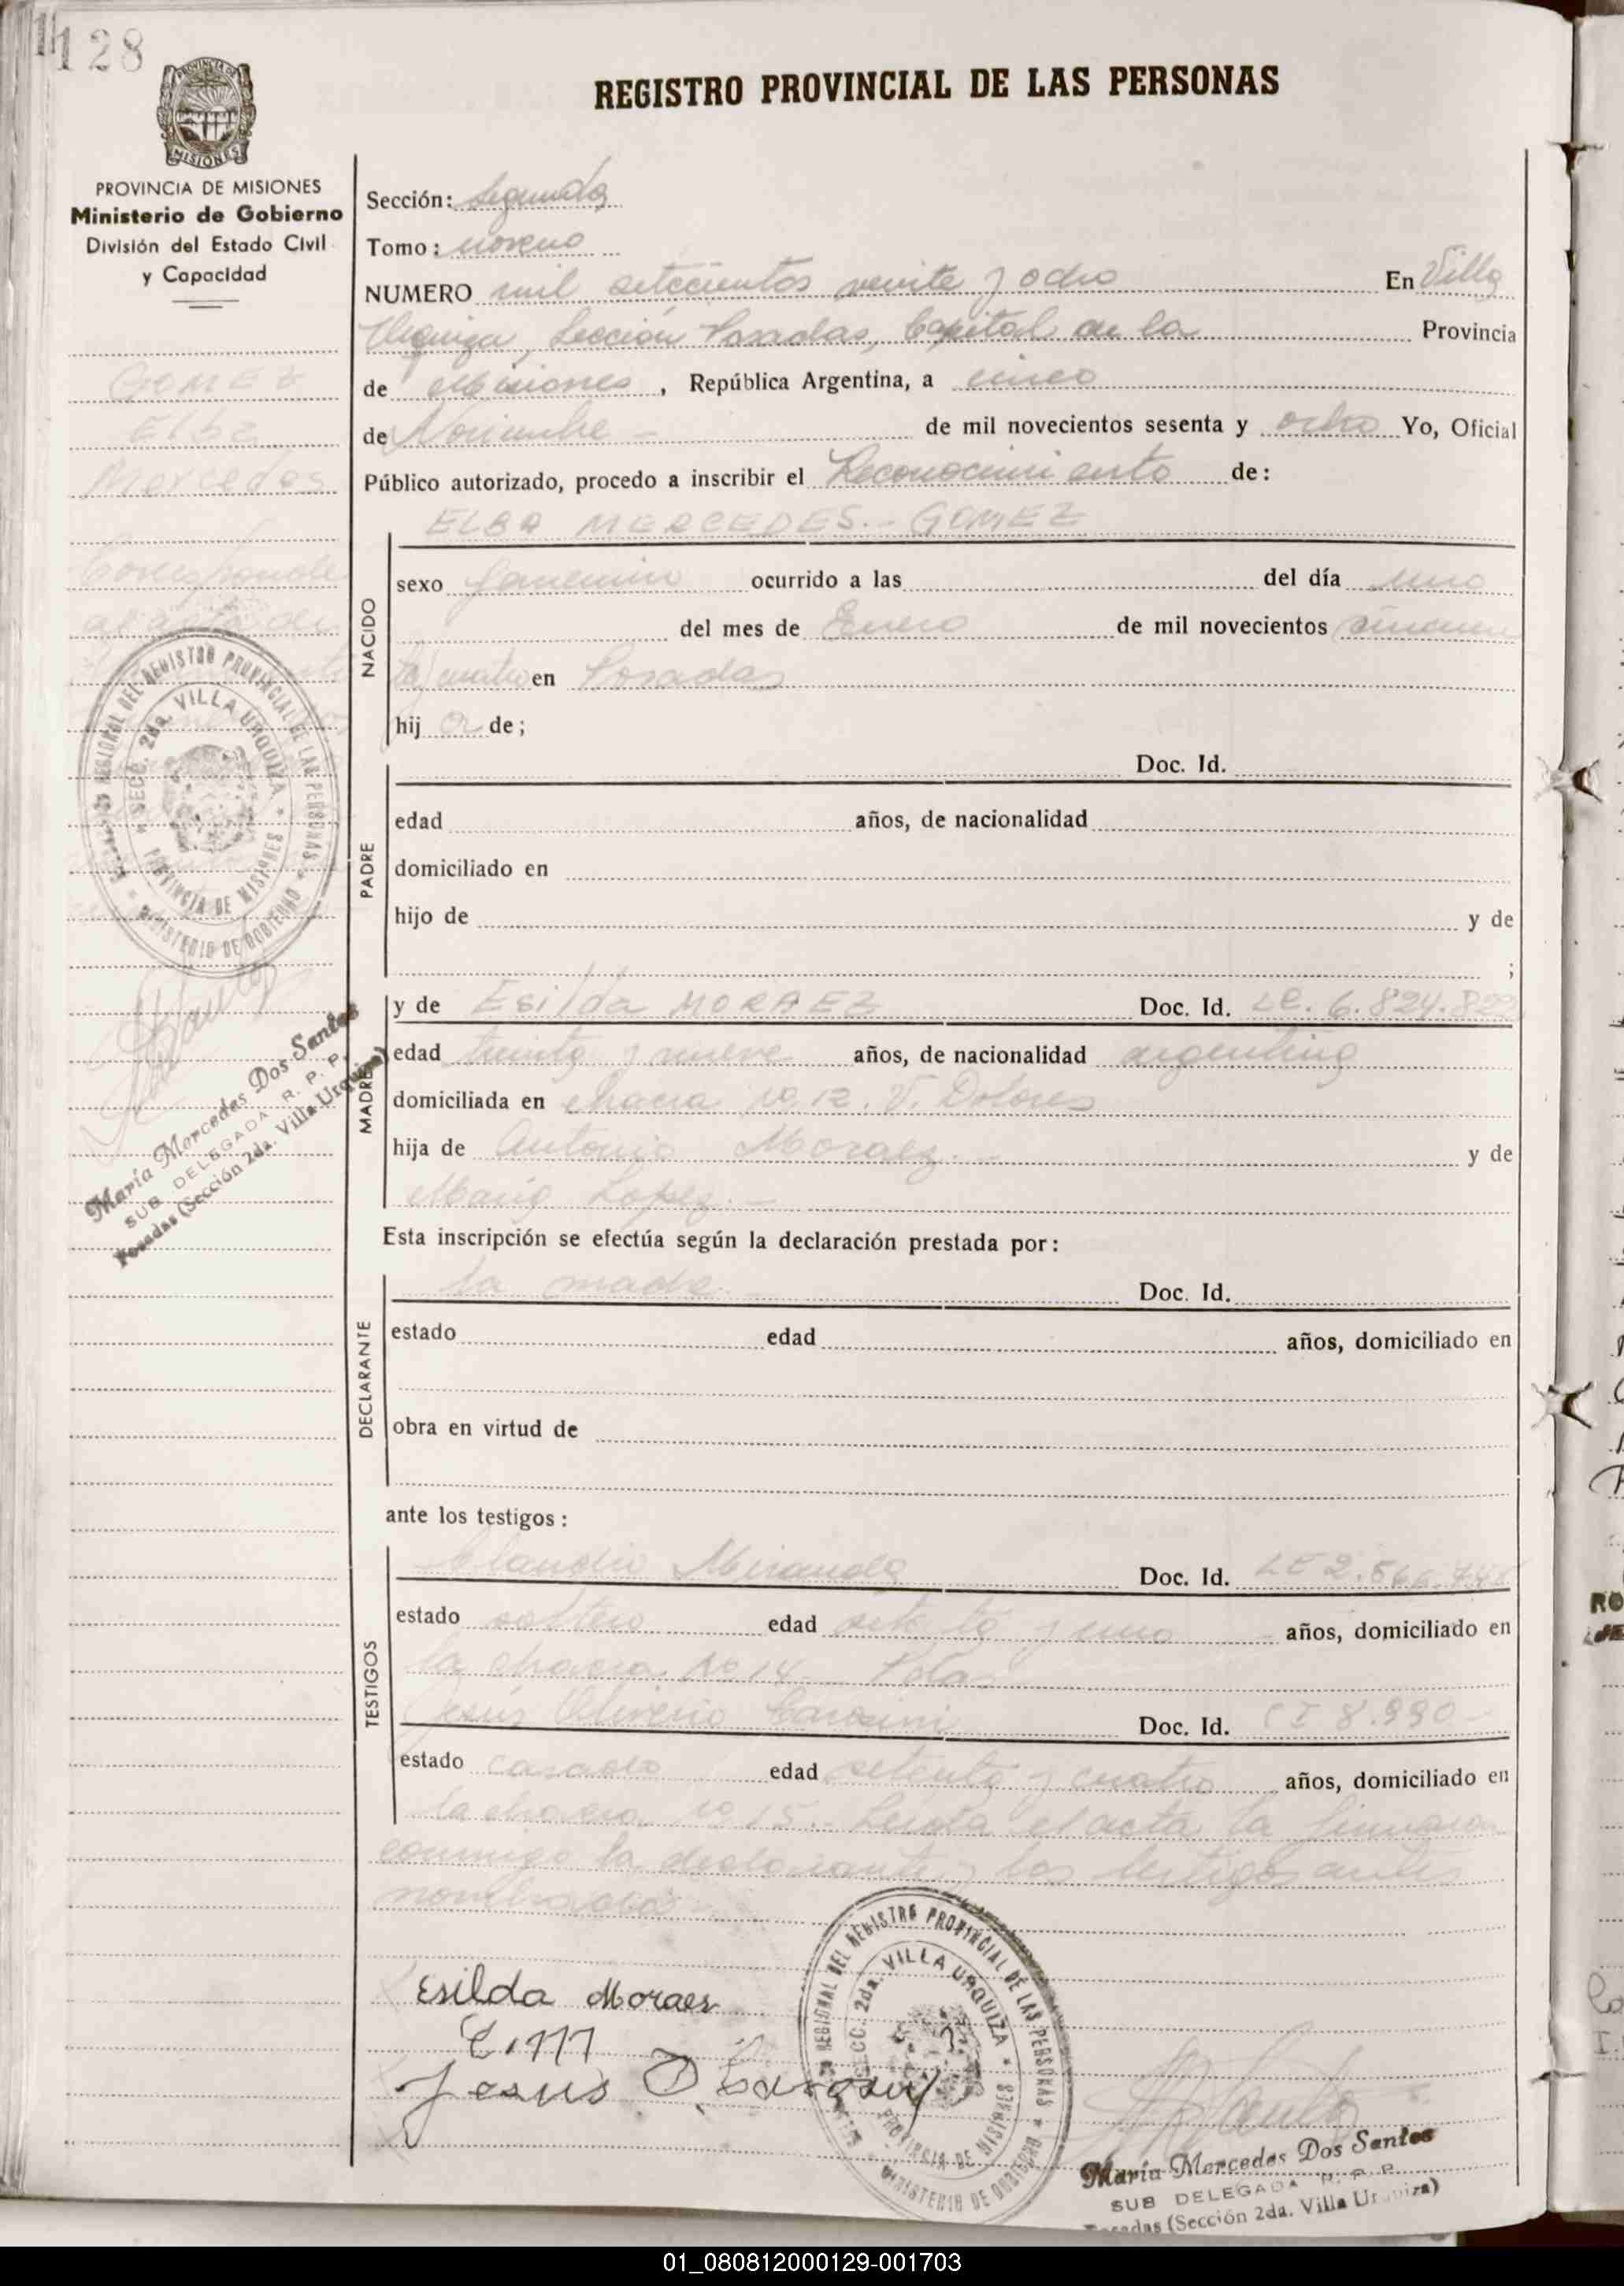 128
REGISTRO PROVINCIAL DE LAS PERSONAS
PROVINCIA DE
MISIONES
PROVINCIA DE MISIONES
Ministerio de Gobierno
División del Estado Civil
y Capacidad
GOMEZ
Elba
Mercedes
Corresponde
al acta de
Sección: Segunda
Tomo: noveno
NUMERO mil setecientos veinte y ocho En Villa
Urquiza, Sección Posadas, Capital de la Provincia
de Misiones, República Argentina, a cinco
de Noviembre - de mil novecientos sesenta y ocho Yo, Oficial
Público autorizado, procedo a inscribir el Reconocimiento de:
ELBA MERCEDES.- GOMEZ
NACIDO
sexo femenino ocurrido a las del día uno
del mes de Enero de mil novecientos cincuen
ta y cuatro en Posadas
hij a de;
PADRE
Doc. Id.
edad años, de nacionalidad
domiciliado en
hijo de y de
;
MADRE
y de Esilda MORAEZ Doc. Id. LC. 6.824.822
edad treinta y nueve años, de nacionalidad argentina
domiciliada en chacra no 12. V. Dolores
hija de Antonio Moraez.- y de
Maria Lopez.-
Esta inscripción se efectúa según la declaración prestada por:
DECLARANTE
la madre. Doc. Id.
estado edad años, domiciliado en
obra en virtud de
ante los testigos:
TESTIGOS
Claudio Miranda Doc. Id. LE 2.566.
estado soltero edad y uno años, domiciliado en
la chacra no 14 Pdas
Jesús Doc. Id. CI 8.990-
estado casado edad setenta y cuatro años, domiciliado en
la chacra no 15.- Leida el acta la firmaron
conmigo la declarante y los testigos antes
nombrados
Esilda Moraes
Jesus O
REGIONAL DEL REGISTRO PROVINCIAL DE LAS PERSONAS
SECC. 2da. VILLA URQUIZA
PROVINCIA DE MISIONES
MINISTERIO DE GOBIERNO
María Mercedes Dos Santos
SUB DELEGADA R. P. P.
Posadas (Sección 2da. Villa Urquiza)
REGIONAL DEL REGISTRO PROVINCIAL DE LAS PERSONAS
SECC. 2da. VILLA URQUIZA
PROVINCIA DE MISIONES
MINISTERIO DE GOBIERNO
María Mercedes Dos Santos
SUB DELEGADA R. P. P.
Posadas (Sección 2da. Villa Urquiza)
01_080812000129-001703